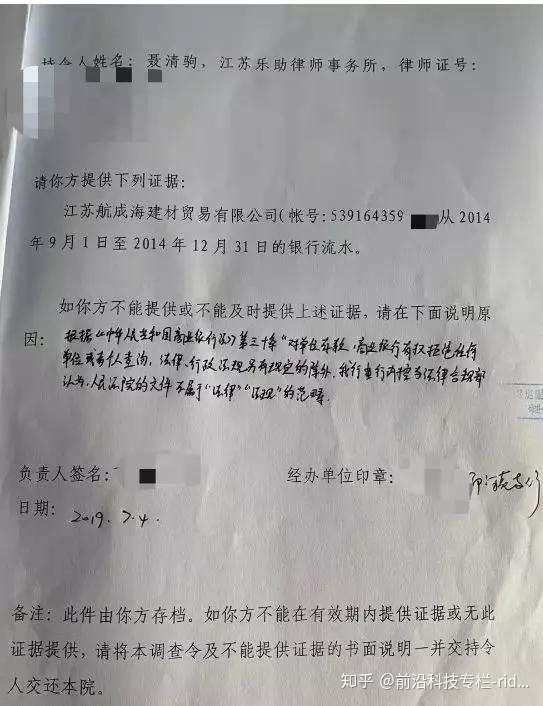 持令人姓名：聂清驹，江苏乐助律师事务所，律师证号：
请你方提供下列证据：
江苏航成海建材贸易有限公司（帐号：539164359 从2014
年9月1日至2014年12月31日的银行流水。
如你方不能提供或不能及时提供上述证据，请在下面说明原
因：根据《中华人民共和国商业银行法》第三十条“对单位存款，商业银行有权拒绝任何
单位或者个人查询，法律、行政法规另有规定的除外，我行 行内控与法律合规部
认为，人民法院的文件不属于“法律”“法规”的范畴。
负责人签名： 经办单位印章：
日期：2019.7.4.
备注：此件由你方存档。如你方不能在有效期内提供证据或无此
证据提供，请将本调查令及不能提供证据的书面说明一并交持令
人交还本院。
知乎 @前沿科技专栏-rid...